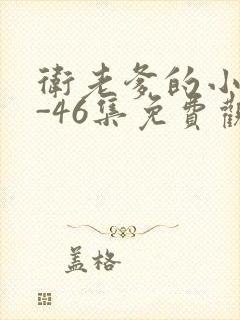 衛老爹的小
-46集免費觀
盖格